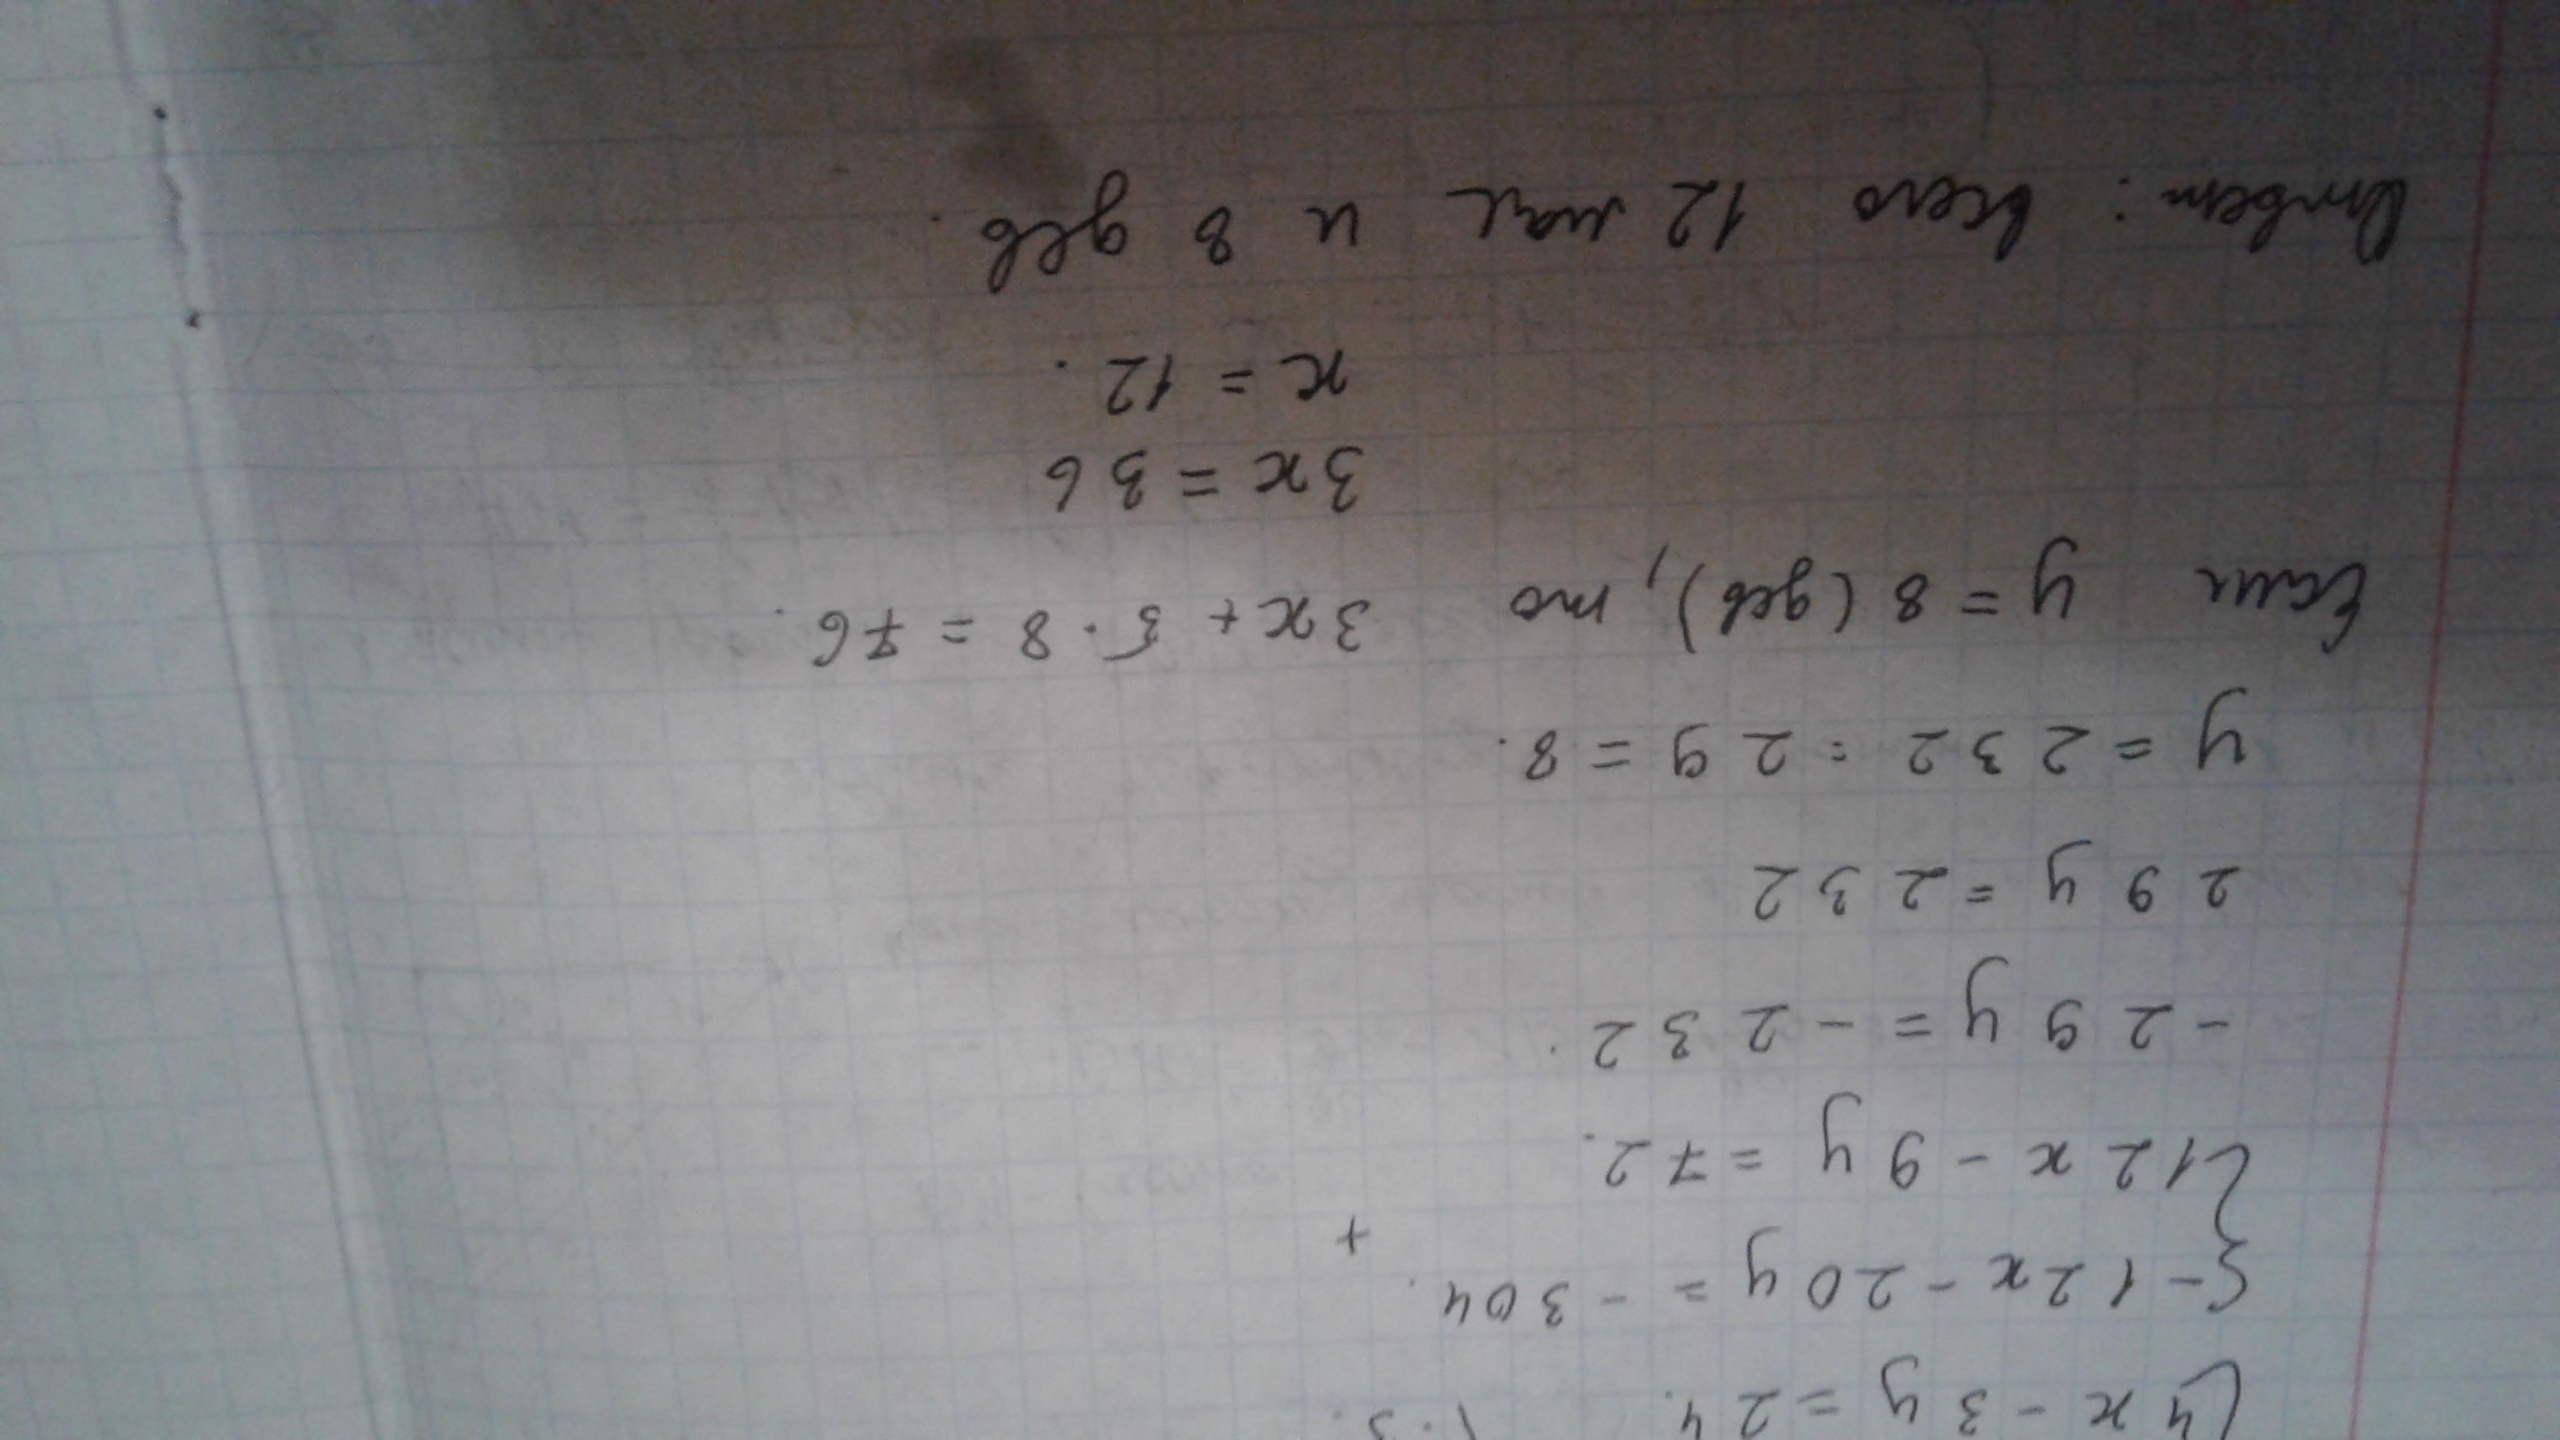 {4x - 3y = 24. | · 3.
{-12x - 20y = -304. +
{12x - 9y = 72.
-29y = -232.
29y = 232
y = 232 : 29 = 8.
Если y = 8 (дев), то 3x + 5 · 8 = 76.
3x = 36
x = 12.
Ответ: всего 12 мал и 8 дев.